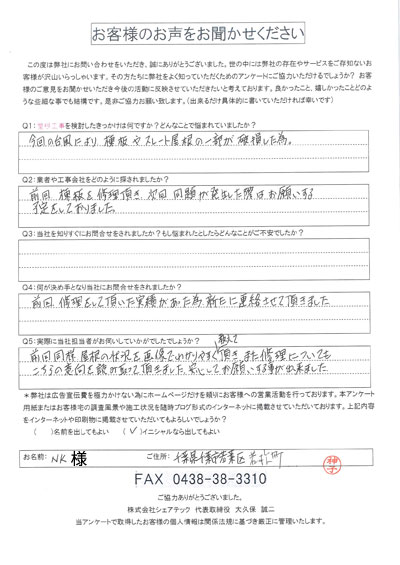 お客様のお声をお聞かせください
この度は弊社にお問い合わせをいただき、誠にありがとうございました。世の中には弊社の存在やサービスをご存知ないお
客様が沢山いらっしゃいます。その方たちに弊社をよく知っていただくためのアンケートにご協力いただけるでしょうか？ お客
様のご意見をお聞かせいただき今後の活動に反映させていただきたいと考えております。良かったこと、嬉しかったことどのよ
うな些細な事でも結構です。是非ご協力お願い致します。（出来るだけ具体的に書いていただければ幸いです）
Q1：屋根工事を検討したきっかけは何ですか？どんなことで悩まれていましたか？
今回の台風により、棟板やスレート屋根の一部が破損した為。
Q2：業者や工事会社をどのように探されましたか？
前回、棟板を修理頂き、次回、問題が発生した際はお願いする
予定をしておりました。
Q3：当社を知りすぐにお問合せをされましたか？もし悩まれたとしたらどんなことがご不安でしたか？
Q4：何が決め手となり当社にお問合せをされましたか？
前回、修理をして頂いた実績があった為、新たに連絡させて頂きました
Q5：実際に当社担当者がお伺いしていかがでしたでしょうか？
教えて
前回同様、屋根の状況を画像でわかりやすく頂き、また修理についても
こちらの意向を読み取って頂きました。安心してお願いする事が出来ました。
＊弊社は広告宣伝費を極力かけない為にホームページだけを頼りにお客様への営業活動を行っております。本アンケート
用紙またはお客様宅の調査風景や施工状況を随時ブログ形式のインターネットに掲載させていただいております。上記内容
をインターネットや印刷物に掲載させていただいてもよろしいでしょうか？
（　）名前を出してもよい　（✓）イニシャルなら出してもよい
お名前：NK 様　ご住所：千葉県千葉市若葉区
FAX 0438-38-3310
ご協力ありがとうございました。
株式会社シェアテック 代表取締役 大久保 誠二
当アンケートで取得したお客様の個人情報は関係法規に基づき厳正に管理いたします。